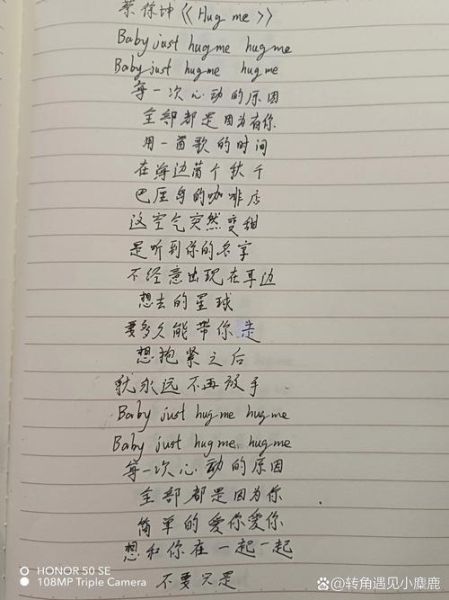 蔡徐坤《Hug me》
Baby just hug me hug me
Baby just hug me hug me
每一次心动的原因
全部都是因为有你
用一首歌的时间
在海边荡个秋千
巴厘岛的咖啡店
这空气突然变甜
是听到你的名字
不经意出现在耳边
想去的星球
要多久能带你走
想抱紧之后
就永远不再放手
Baby just hug me hug me
Baby just hug me hug me
每一次心动的原因
全部都是因为你
简单的爱你爱你
想和你在一起一起
不要只是
HONOR 50 SE
108MP Triple Camera
@转角遇见小麋鹿